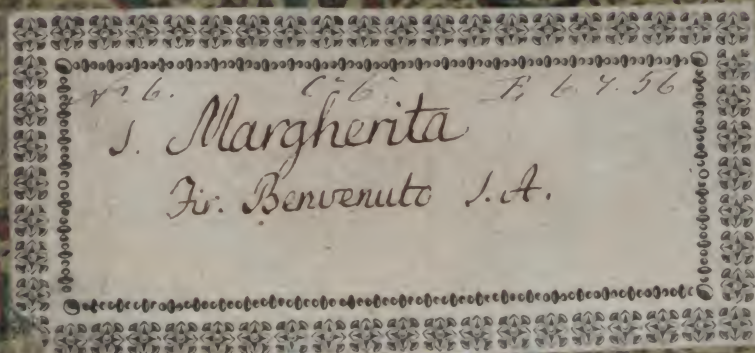 N.º 6. C. 6. F, 6. 7. 56
S. Margherita
Fir. Benvenuto S. A.